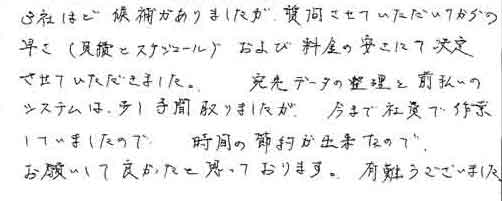 3社ほど候補がありましたが、質問させていただいてからの
早さ(見積とスケジュール)および料金の安さにて決定
させていただきました。 宛先データの整理と前払いの
システムは、少し手間取りましたが、今まで社員で作業
していましたので、時間の節約が出来たので、
お願いして良かったと思っております。有難うございました